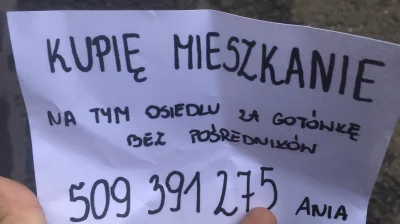 KUPIĘ MIESZKANIE
NA TYM OSIEDLU ZA GOTÓWKĘ
BEZ POŚREDNIKÓW
509 391 275 ANIA